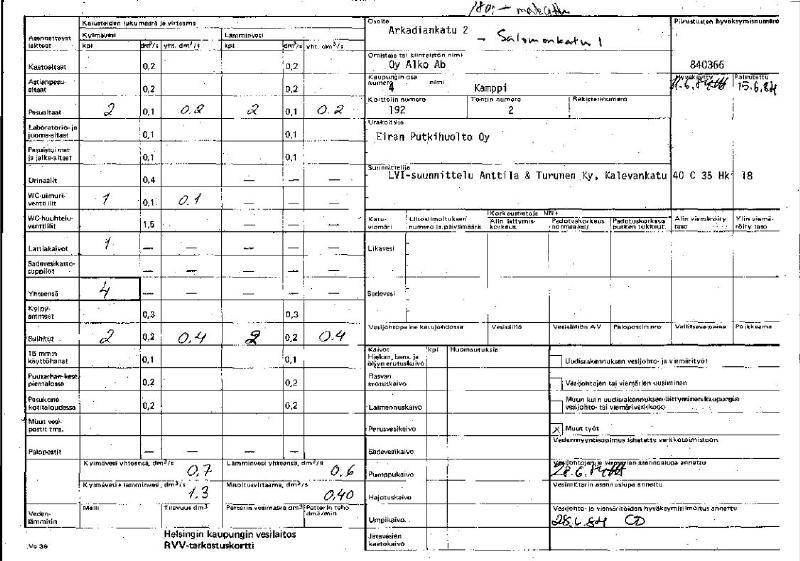 180,-
Kalusteiden lukumäärä ja virtaama
Osoite
Arkadiankatu 2 - Salomonkatu 1
Piirustusten hyväksymisnumero
840366
Asennettavat laitteet
Kylmävesi
Lämminvesi
kpl dm³/s yht. dm³/s kpl dm³/s yht. dm³/s
Omistaja tai kiinteistön nimi
Oy Alko Ab
Kaupungin osa numero nimi
4 Kamppi
Hyväksytty
Palautettu
15.6.84
Korttelin numero
192
Tontin numero
2
Rekisterinumero
Urakoitsija
Eiran Putkihuolto Oy
Suunnittelija
LVI-suunnittelu Anttila & Turunen Ky, Kalevankatu 40 C 35 Hki 18
Kastoaltaat 0,2 0,2
Astianpesualtaat 0,2 0,2
Pesualtaat 2 0,1 0.2 2 0,1 0.2
Laboratorio- ja juoma-altaat 0,1 0,1
Pesuistuimet ja jalka-altaat 0,1 0,1
Urinaalit 0,4
WC-uimuriventtiilit 1 0,1 0.1
WC-huuhteluventtiilit 1,5
Lattiakaivot 1 — — — — —
Sadevesikattosuppilot — — — — —
Yhteensä 4 — — — — —
Kylpyammeet 0,3 0,3
Suihkut 2 0,2 0.4 2 0,2 0.4
15 mm:n käyttöhanat 0,1 0,1
Puutarhan kast. pientalossa 0,2 0,2
Pesukone kotitaloudessa 0,2 0,2
Muut vesipostit yms.
Palopostit — — —
Kylmävesi yhteensä, dm³/s
0,7
Lämminvesi yhteensä, dm³/s
0,6
Kylmävesi + lämminvesi, dm³/s
1.3
Mitoitusvirtaama, dm³/s
0,40
Vedenlämmitin
Malli
Tilavuus dm³
Patterin vesimäärä dm³
Patterin teho
Katuviemäri
Liitoslausunnon numero ja päivämäärä
Korkeustietoja NN+
Alin liittymiskorkeus
Padotuskorkeus normaalisti
Padotuskorkeus putken tukkeut.
Alin viemäröity taso
Ylin viemäröity taso
Likavesi
Sadevesi
Vesijohtopaine katujohdossa
Vesisäiliö
Vesisäiliön AV
Palopostin nro
Vallitseva paine
Poikkeama
Kaivot
kpl
Huomautuksia
Hiekan, bens. ja öljyn erotuskaivo
Rasvan erotuskaivo
Laimennuskaivo
Perusvesikaivo
Sadevesikaivo
Pumppukaivo
Hajotuskaivo
Umpikaivo
Jätevesien kaatokaivo
Uudisrakennuksen vesijohto- ja viemärityöt
Vesijohtojen tai viemärien uusiminen
Muun kuin uudisrakennuksen liittyminen kaupungin vesijohto- tai viemäriverkkoon
x Muut työt
Vedenmyyntisopimus lähetetty verkkotoimistoon
Vesijohtojen ja viemärien asennuslupa annettu
28.6.
Vesimittarin asennuslupa annettu
Vesijohto- ja viemäritöiden hyväksymisilmoitus annettu
28.6.84
Helsingin kaupungin vesilaitos
RVV-tarkastuskortti
Vo 36